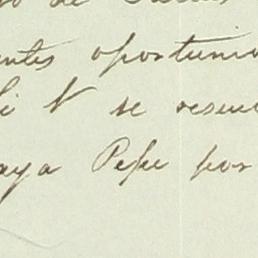 de
entes oportuni
li V se resuel
aya Pepe por